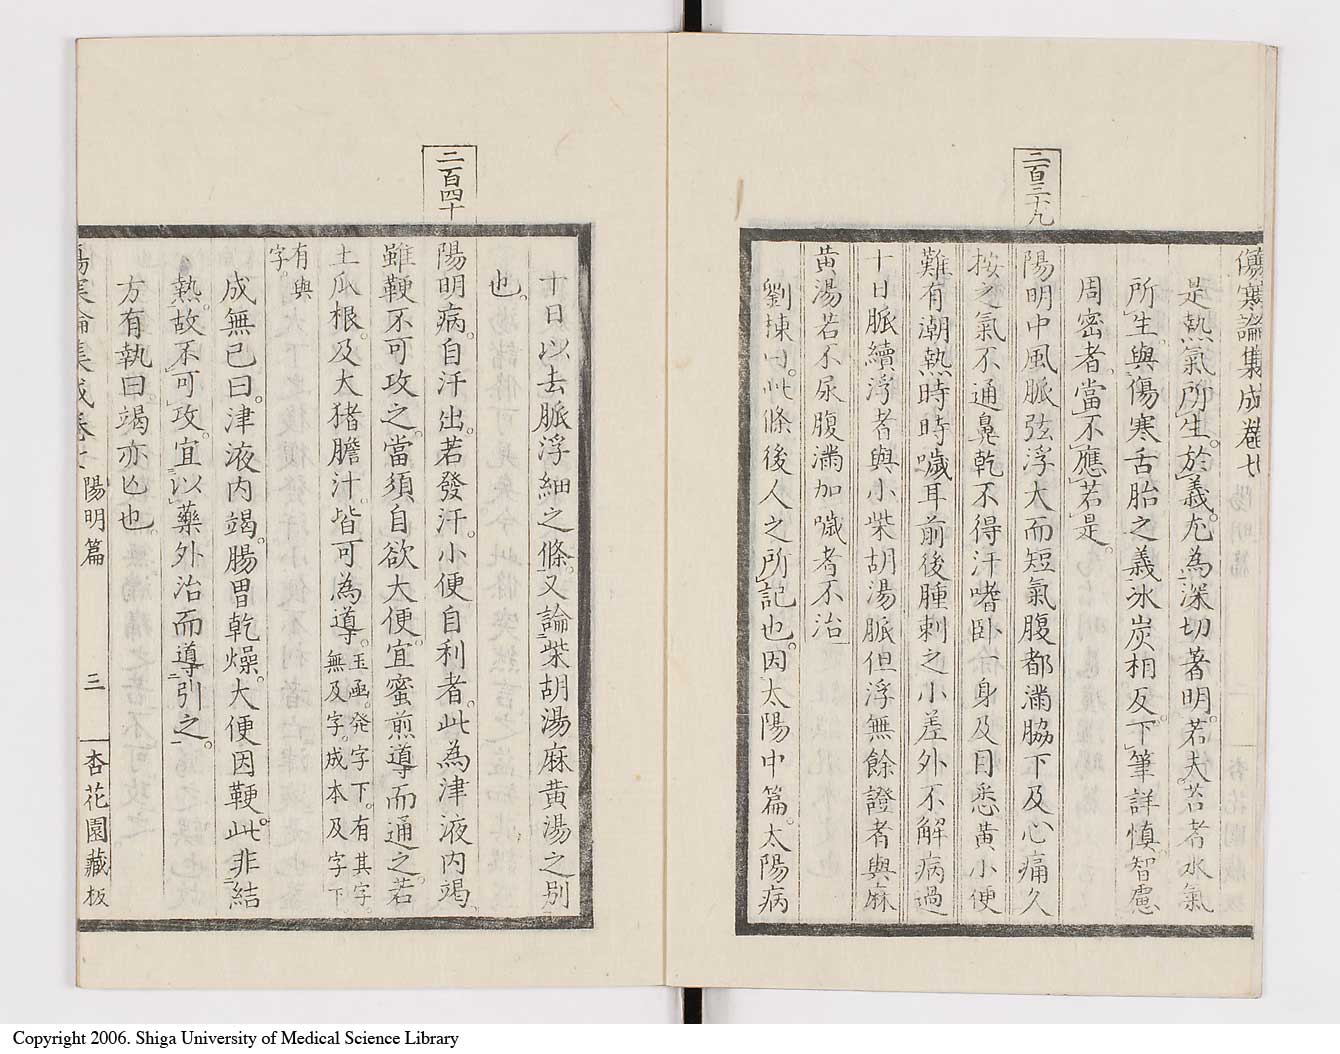 傷寒論集成卷七
是熱氣所生。於義尤為深切著明。若夫苔者水氣
所生。與傷寒舌胎之義氷炭相反。下筆詳慎。智慮
周密者。當不應若是。
二百三十九
陽明中風脈弦浮大而短氣腹都滿脇下及心痛久
按之氣不通鼻乾不得汗嗜卧一身及目悉黃小便
難有潮熱時時噦耳前後腫刺之小差外不解病過
十日脈續浮者與小柴胡湯脈但浮無餘證者與麻
黃湯若不尿腹滿加噦者不治
劉棟曰。此條後人之所記也。因太陽中篇。太陽病
十日以去脈浮細之條。又論柴胡湯麻黃湯之別
也。
二百四十
陽明病。自汗出。若發汗。小便自利者。此為津液內竭。
雖鞕不可攻之。當須自欲大便。宜蜜煎導而通之。若
土瓜根。及大猪膽汁。皆可為導。玉函。発字下。有其字。
無及字。成本及字下。
有與
字。
成無己曰。津液內竭。腸胃乾燥。大便因鞕。此非結
熱。故不可攻。宜以藥外治而導引之。
方有執曰。竭亦亾也。
傷寒論集成卷七 陽明篇 三 杏花園藏板